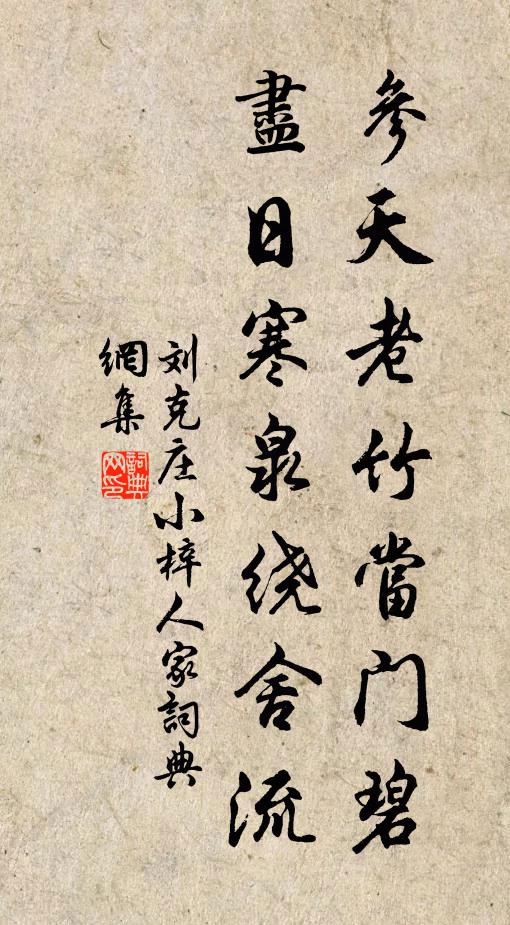 參天老竹當门碧
盡日寒泉绕舍流
刘克庄小梓人家詞典
網集
詞典
网印